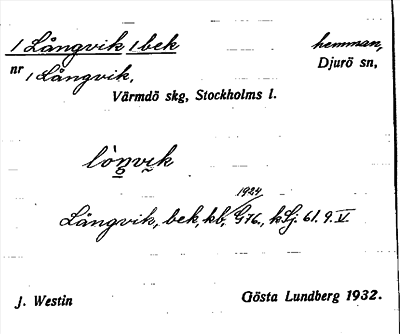 1 Långvik 1 bek hemman,
nr 1 Långvik, Djurö sn,
Värmdö skg, Stockholms l.
lòn̥vik
1924
Långvik, bek, kb, G 76., k Lj. 61. 9. V.
J. Westin Gösta Lundberg 1932.